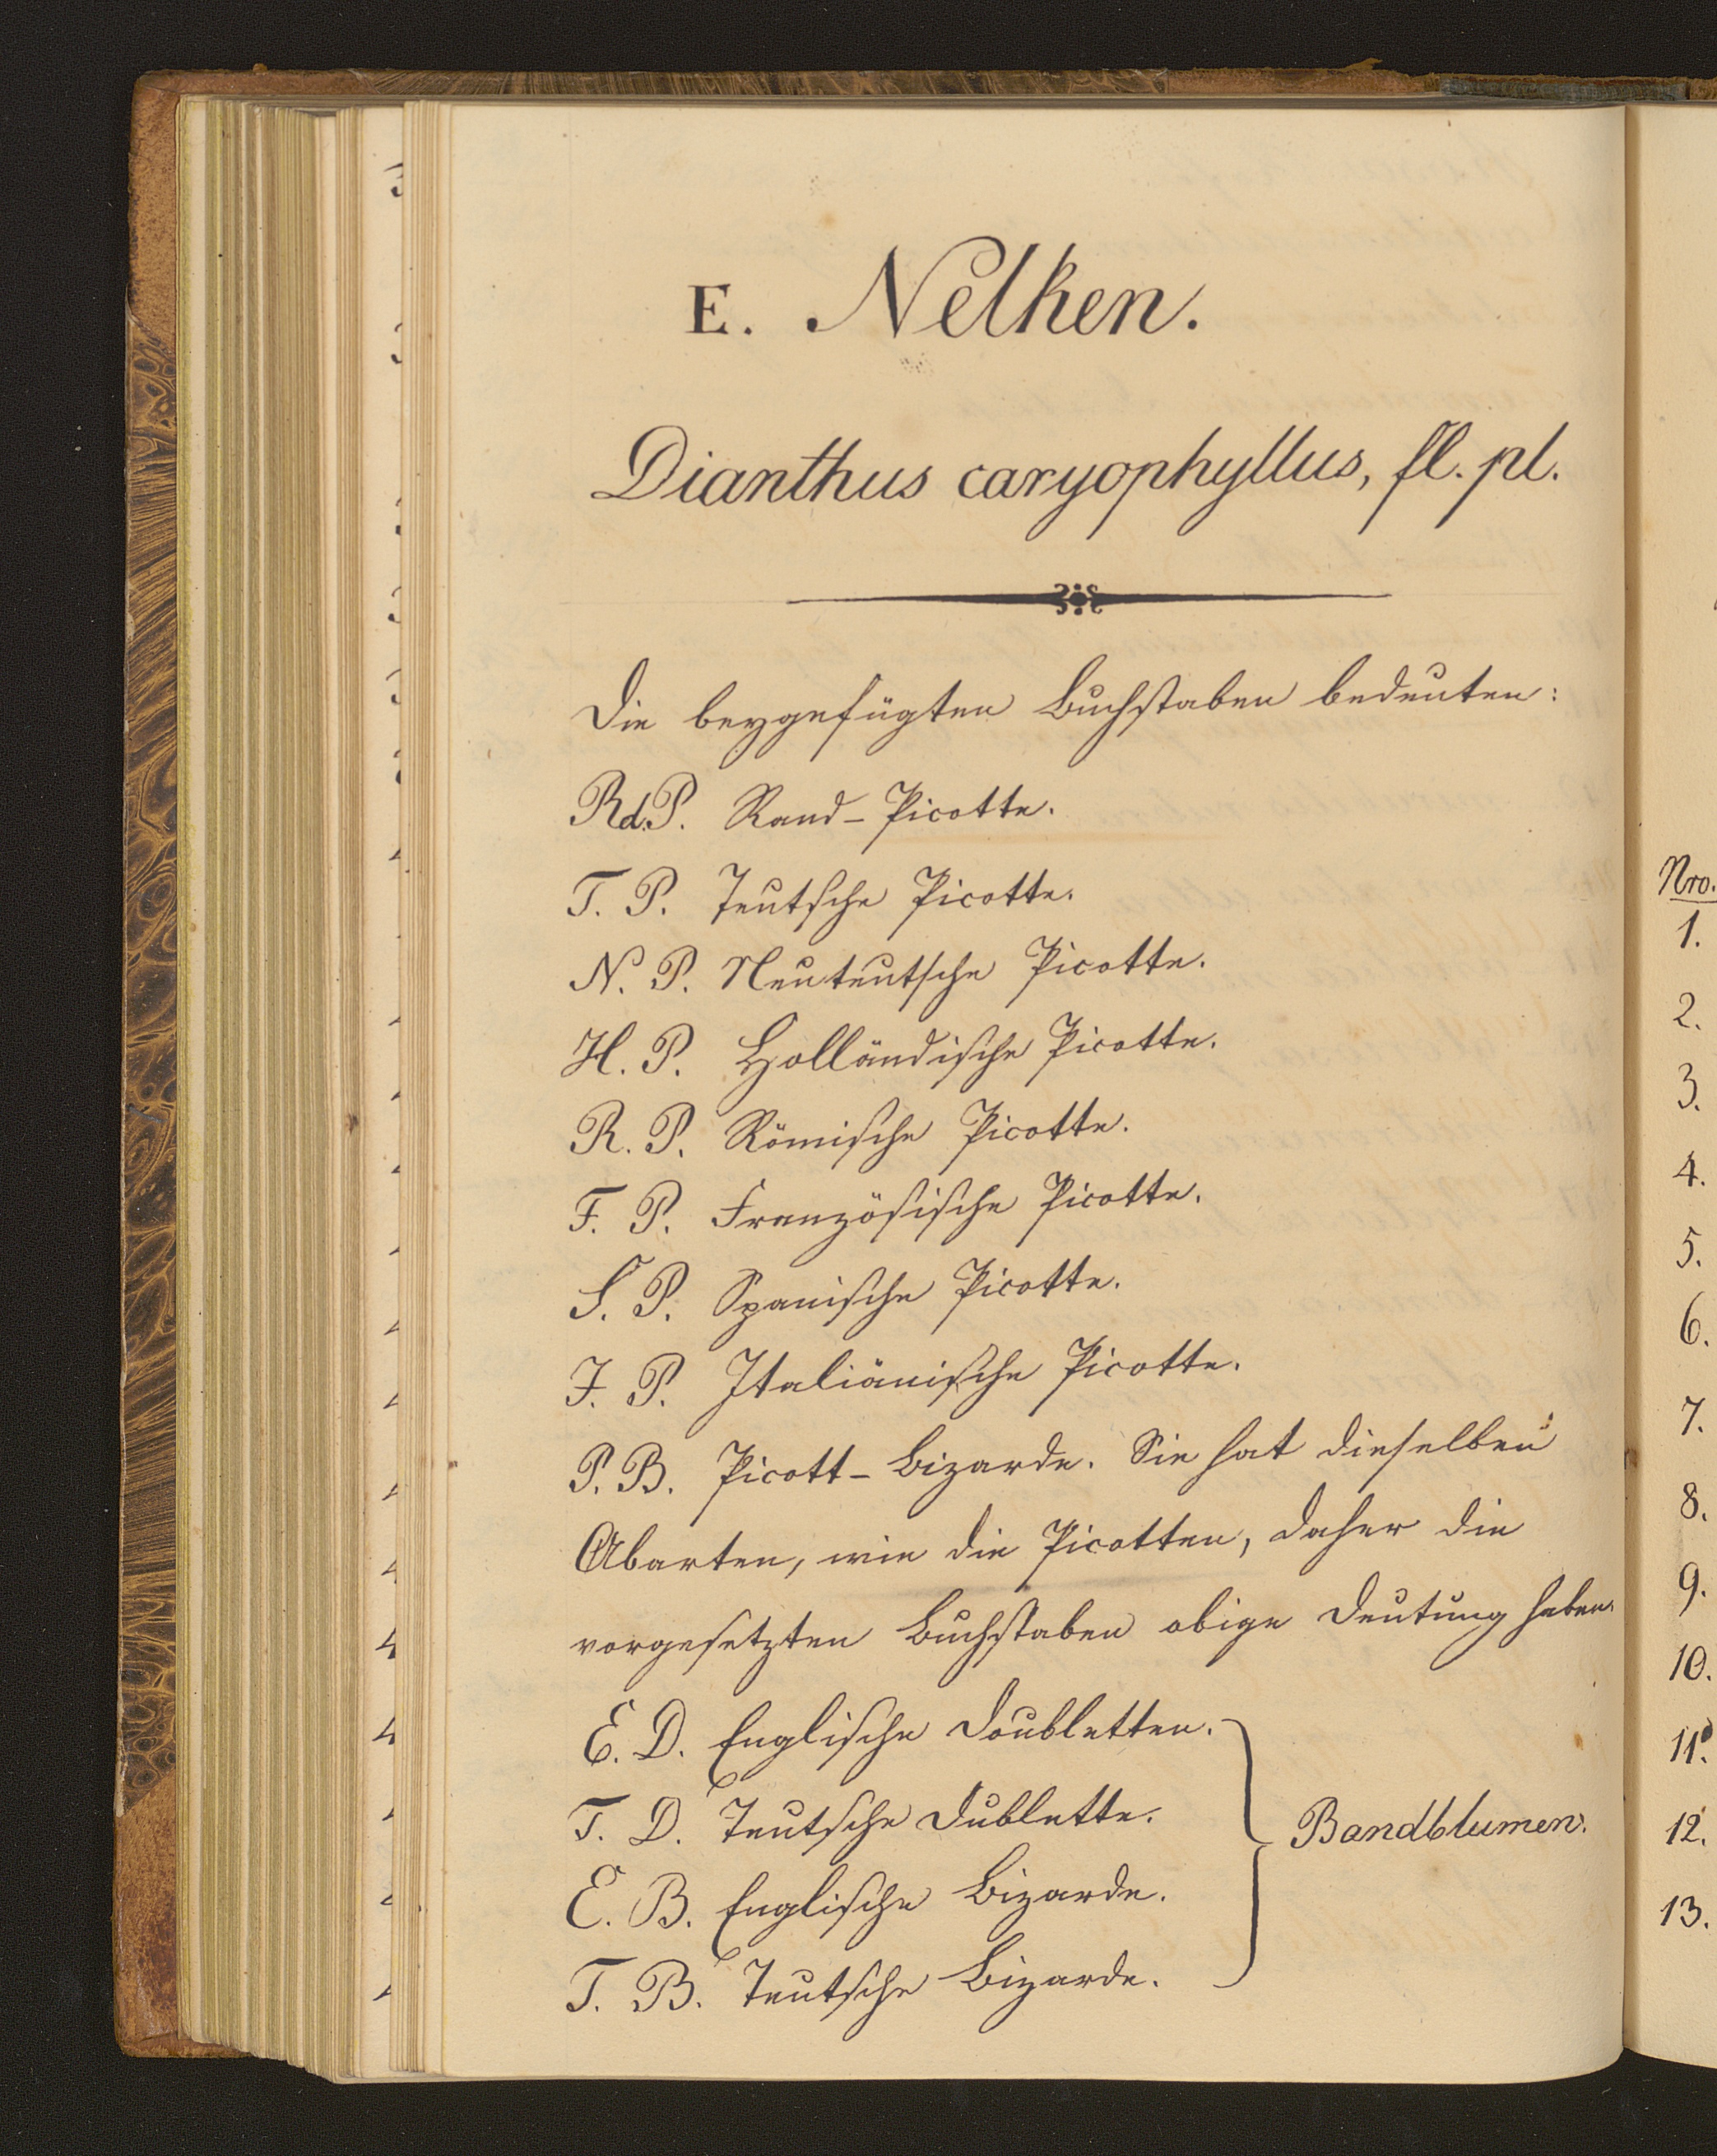 E. Nelken.
Dianthus caryophyllus, fl. pl.
Die beygefügten Buchstaben bedeuten:
Rd.P. Rand-Picotte.
T. P. Teutsche Picotte.
N. P. Neuteutsche Picotte.
H. P. Holländische Picotte.
R. P. Römische Picotte.
F. P. Französische Picotte.
S. P. Spanische Picotte.
I. P. Italiänische Picotte.
P. B. Picott-Bizarde. Sie hat dieselben
Abarten, wie die Picotten, daher die
vorgesetzten Buchstaben obige Deutung haben.
E. D. Englische Doubletten.
T. D. Teutsche Dublette.
Bandblumen.
E. B. Englische Bizarde.
T. B. Teutsche Bizarde.
Nro.
1.
2.
3.
4.
5.
6.
7.
8.
9.
10.
11.
12.
13.